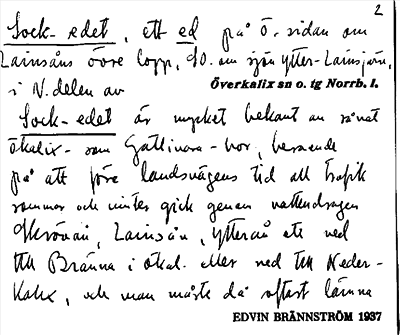 2
Sock-edet, ett ed på ö. sidan om
Lainsåns övre lopp, SO. om sjön Ytter-Lainsjärv,
i N. delen av
Överkalix sn o. tg Norrb. l.
Sock-edet är mycket bekant av såväl
ökalix- som Gällivare-bor, beroende
på att före landsvägens tid all trafik
sommar och vinter gick genom vattendragen
Skrövån, Lainsån, Ytterån etc ned
till Bränna i ökal. eller ned till Neder-
kalix, och man måste då oftast lämna
EDVIN BRÄNNSTRÖM 1937